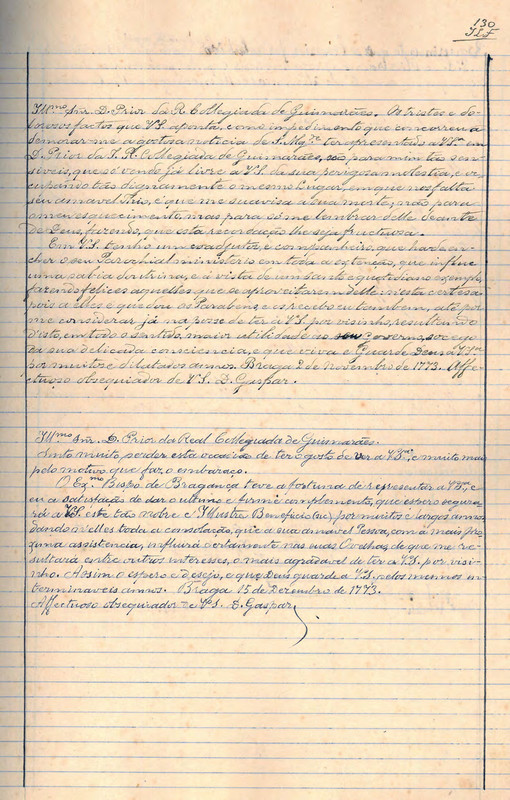 130
Ill.mo Snr. D. Prior da R. Collegiada de Guimarães. Os tristes e do-
lorosos factos que V.S. aponta, como impedimento que concorreu a
demorar-me a gostosa noticia de S. Mg.de ter apresentado a V.S. em
D. Prior da I. R. Collegiada de Guimarães, são para mim tão sen-
siveis, que só vendo já livre a V.S. da sua perigosa molestia, e oc-
cupando tão dignamente o mesmo Lugar, em que nos falta
seu amavel Tio, é que me suavisa a sua morte; não para
o meu esquecimento, mas para só me lembrar delle deante
de Deus, fazendo, que esta recordação lhe seja fructuosa.
Em V.S. tenho um coadjutor, e companheiro, que ha de en-
cher o seu Parochial ministerio em toda a extenção, que influe
uma sabia doutrina, e á vista de um Santo e quotidiano exemplo,
fazendo felices aquelles que se aproveitarem delle: n'esta certesa
pois a elles é que dou os Parabens, e os recebo eu tambem, até por
me considerar já na posse de ter a V.S. por visinho, resultando
d'isto, em todo o sentido, maior utilidade ao governo, socego
da sua delicada consciencia, e que viva e Guarde Deus a V.S.
por muitos e dilatados annos. Braga 2 de Novembro de 1773. Affe-
ctuoso obsequiador de V.S. D. Gaspar.
Ill.mo Snr. D. Prior da Real Collegiada de Guimarães.
Sinto muito, perder esta occasião de ter o gosto de ver a V.S., e muito mais
pelo motivo, que faz o embaraço.
O Ex.mo Bispo de Bragança teve a fortuna de representar a V.S., e
eu a satisfação de dar o ultimo e firme complemento, que espero segura-
rá a V.S. este tão nobre e Illustre Beneficio (sic), por muitos e largos annos
dando n'elles toda a consolação, que a sua amavel Pessoa, com a mais pro-
xima assistencia, influirá certamente nas suas Ovelhas, de que me re-
sultará entre outros interesses, o mais agradavel de ter a V.S. por visi-
nho. Assim o espero e o desejo, e que Deus guarde a V.S. pelos mesmos in-
terminaveis annos. Braga 15 de Dezembro de 1773.
Affectuoso obsequiador de V.S. D. Gaspar